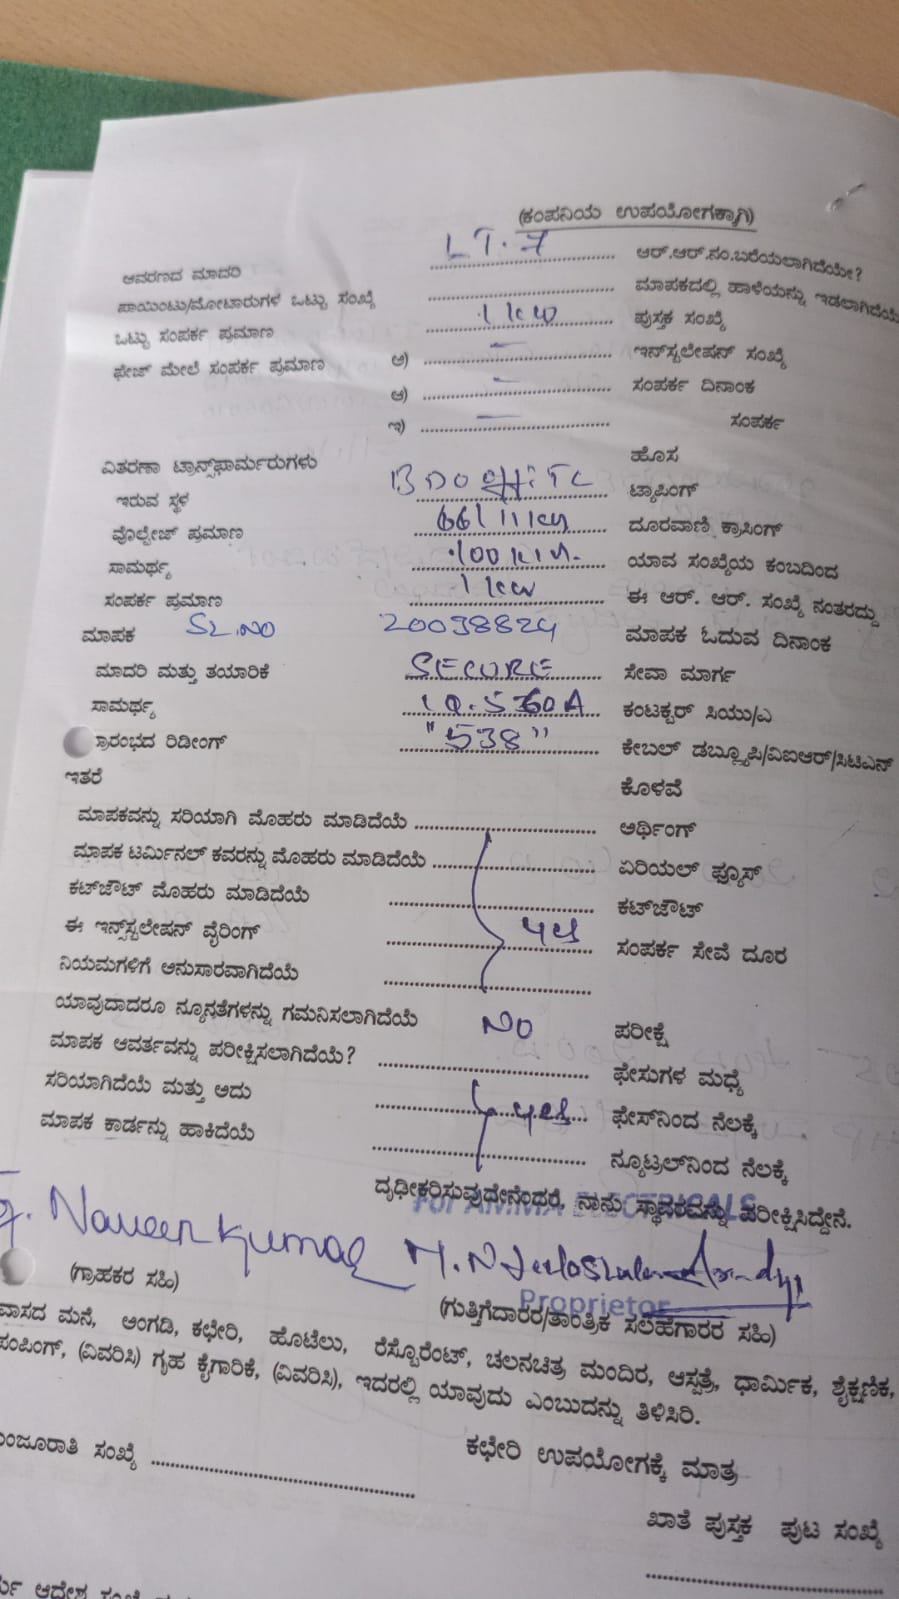 (ಕಂಪನಿಯ ಉಪಯೋಗಕ್ಕಾಗಿ)
ಆವರಣದ ಮಾದರಿ LT.7 ಆರ್.ಆರ್.ನಂ.ಬರೆಯಲಾಗಿದೆಯೇ?
ಪಾಯಿಂಟು/ಮೋಟಾರುಗಳ ಒಟ್ಟು ಸಂಖ್ಯೆ ಮಾಪಕದಲ್ಲಿ ಹಾಳೆಯನ್ನು ಇಡಲಾಗಿದೆಯೇ
ಒಟ್ಟು ಸಂಪರ್ಕ ಪ್ರಮಾಣ 1 kw ಪುಸ್ತಕ ಸಂಖ್ಯೆ
ಫೇಜ್ ಮೇಲೆ ಸಂಪರ್ಕ ಪ್ರಮಾಣ ಅ) – ಇನ್‌ಸ್ಟಲೇಷನ್ ಸಂಖ್ಯೆ
ಆ) – ಸಂಪರ್ಕ ದಿನಾಂಕ
ಇ) – ಸಂಪರ್ಕ
ವಿತರಣಾ ಟ್ರಾನ್ಸ್‌ಫಾರ್ಮರುಗಳು ಹೊಸ
ಇರುವ ಸ್ಥಳ BDO TC ಟ್ಯಾಪಿಂಗ್
ವೊಲ್ಟೇಜ್ ಪ್ರಮಾಣ 66/11 ದೂರವಾಣಿ ಕ್ರಾಸಿಂಗ್
ಸಾಮರ್ಥ್ಯ 100 ಯಾವ ಸಂಖ್ಯೆಯ ಕಂಬದಿಂದ
ಸಂಪರ್ಕ ಪ್ರಮಾಣ 1 kw ಈ ಆರ್. ಆರ್. ಸಂಖ್ಯೆ ನಂತರದ್ದು
ಮಾಪಕ SL.NO 20038824 ಮಾಪಕ ಓದುವ ದಿನಾಂಕ
ಮಾದರಿ ಮತ್ತು ತಯಾರಿಕೆ SECURE ಸೇವಾ ಮಾರ್ಗ
ಸಾಮರ್ಥ್ಯ ಕಂಟಕ್ಟರ್ ಸಿಯು/ಎ
ಪ್ರಾರಂಭದ ರಿಡೀಂಗ್ "538" ಕೇಬಲ್ ಡಬ್ಲ್ಯೂಪಿ/ವಿಐಆರ್/ಸಿಟಿಎನ್
ಇತರೆ ಕೊಳವೆ
ಮಾಪಕವನ್ನು ಸರಿಯಾಗಿ ಮೊಹರು ಮಾಡಿದೆಯೆ ಅರ್ಥಿಂಗ್
ಮಾಪಕ ಟರ್ಮಿನಲ್ ಕವರನ್ನು ಮೊಹರು ಮಾಡಿದೆಯೆ ಏರಿಯಲ್ ಫ್ಯೂಸ್
ಕಟ್‌ಜೌಟ್ ಮೊಹರು ಮಾಡಿದೆಯೆ ಕಟ್‌ಜೌಟ್
ಈ ಇನ್ಸ್‌ಸ್ಟಲೇಷನ್ ವೈರಿಂಗ್ yes ಸಂಪರ್ಕ ಸೇವೆ ದೂರ
ನಿಯಮಗಳಿಗೆ ಅನುಸಾರವಾಗಿದೆಯೆ
ಯಾವುದಾದರೂ ನ್ಯೂನ್ಯತೆಗಳನ್ನು ಗಮನಿಸಲಾಗಿದೆಯೆ NO ಪರೀಕ್ಷೆ
ಮಾಪಕ ಆವರ್ತವನ್ನು ಪರೀಕ್ಷಿಸಲಾಗಿದೆಯೆ? ಫೇಸುಗಳ ಮಧ್ಯೆ
ಸರಿಯಾಗಿದೆಯೆ ಮತ್ತು ಅದು yes ಫೇಸ್‌ನಿಂದ ನೆಲಕ್ಕೆ
ಮಾಪಕ ಕಾರ್ಡನ್ನು ಹಾಕಿದೆಯೆ ನ್ಯೂಟ್ರಲ್‌ನಿಂದ ನೆಲಕ್ಕೆ
ದೃಢೀಕರಿಸುವುದೇನೆಂದರೆ, ನಾನು ಸ್ಥಾವರವನ್ನು ಪರೀಕ್ಷಿಸಿದ್ದೇನೆ.
For AMMA ELECTRICALS
Naveen Kumar
Proprietor
(ಗ್ರಾಹಕರ ಸಹಿ) (ಗುತ್ತಿಗೆದಾರರ/ತಾಂತ್ರಿಕ ಸಲಹೆಗಾರರ ಸಹಿ)
ವಾಸದ ಮನೆ, ಅಂಗಡಿ, ಕಛೇರಿ, ಹೊಟೆಲು, ರೆಸ್ಟೊರೆಂಟ್, ಚಲನಚಿತ್ರ ಮಂದಿರ, ಆಸ್ಪತ್ರೆ, ಧಾರ್ಮಿಕ, ಶೈಕ್ಷಣಿಕ,
ಪಂಪಿಂಗ್, (ವಿವರಿಸಿ) ಗೃಹ ಕೈಗಾರಿಕೆ, (ವಿವರಿಸಿ), ಇದರಲ್ಲಿ ಯಾವುದು ಎಂಬುದನ್ನು ತಿಳಿಸಿರಿ.
ಕಛೇರಿ ಉಪಯೋಗಕ್ಕೆ ಮಾತ್ರ
ಮಂಜೂರಾತಿ ಸಂಖ್ಯೆ
ಖಾತೆ ಪುಸ್ತಕ ಪುಟ ಸಂಖ್ಯೆ
ಆದೇಶ ಸಂಖ್ಯೆ